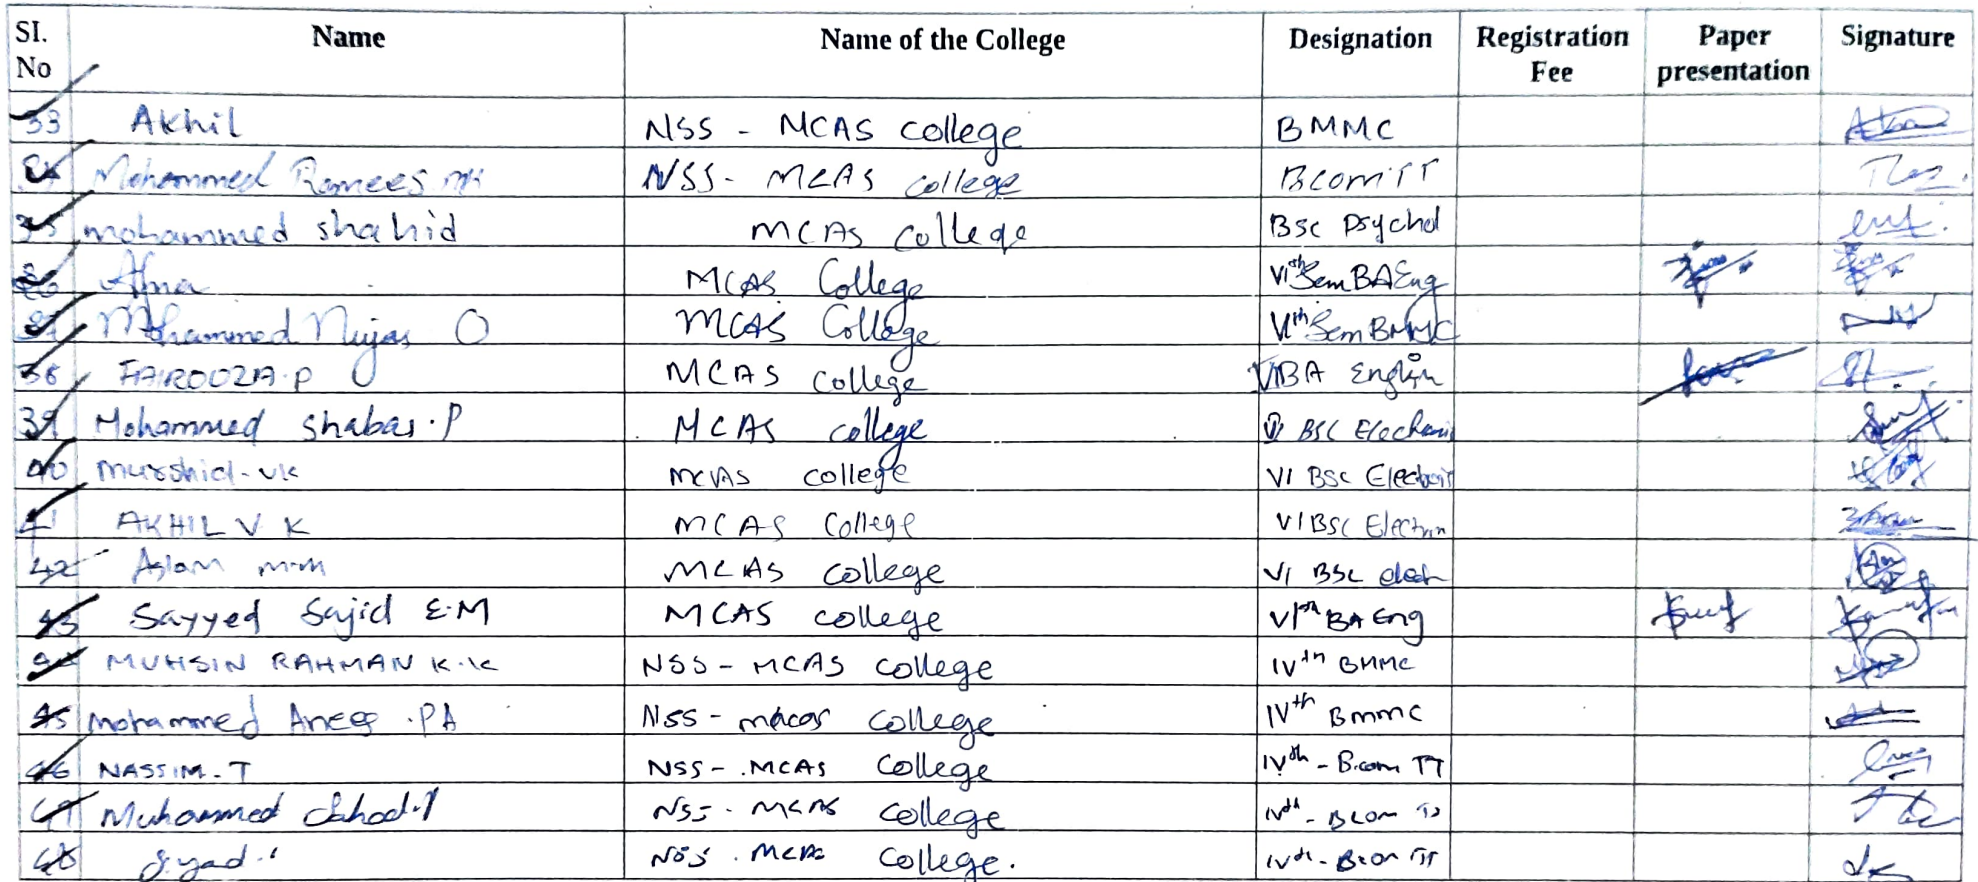 SI. No Name Name of the College Designation Registration Fee Paper presentation Signature
33 Akhil NSS - MCAS college BMMC
34 Mohammed Ramees NSS - MCAS college BcomTT
35 mohammed shahid MCAS college BSc Psychol
36 Afna MCAS College VIth Sem BA Eng
37 Mohammed Nujas O MCAS College VIth Sem BMMC
38 FAIROOZA.P MCAS College VI BA English
39 Mohammed shabas.P MCAS college VI BSC Electroni
40 murshid.vk MCAS college VI BSc Electroni
41 AKHIL V K MCAS College VI BSc Electron
42 Aslam m.m MCAS college VI BSC elect
43 Sayyed Sajid E.M MCAS college VIth BA Eng
44 MUHSIN RAHMAN K.K NSS - MCAS college IVth BMMC
45 mohammed Anees .PA NSS - macas college IVth Bmmc
46 NASSIM.T NSS - MCAS college IVth - B.com TT
47 Muhammed NSS - MCAS college IVth - Bcom
48 NSS . MCAS College. IVth - Bcom TT